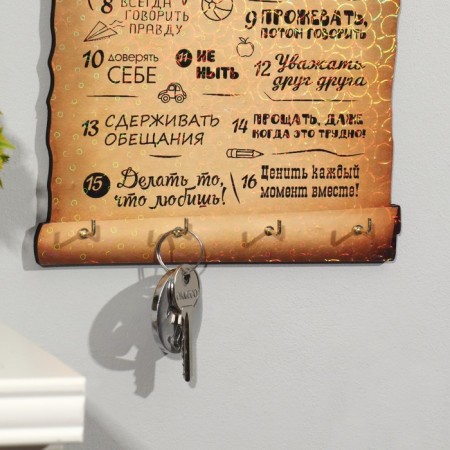 8 ВСЕГДА
ГОВОРИТЬ
ПРАВДУ
9 ПРОЖЕВАТЬ,
ПОТОМ ГОВОРИТЬ
10 доверять
СЕБЕ
11 НЕ
НЫТЬ
12 Уважать
друг друга
13 СДЕРЖИВАТЬ
ОБЕЩАНИЯ
14 ПРОЩАТЬ, ДАЖЕ
КОГДА ЭТО ТРУДНО!
15 Делать то,
что любишь!
16 Ценить каждый
момент вместе!